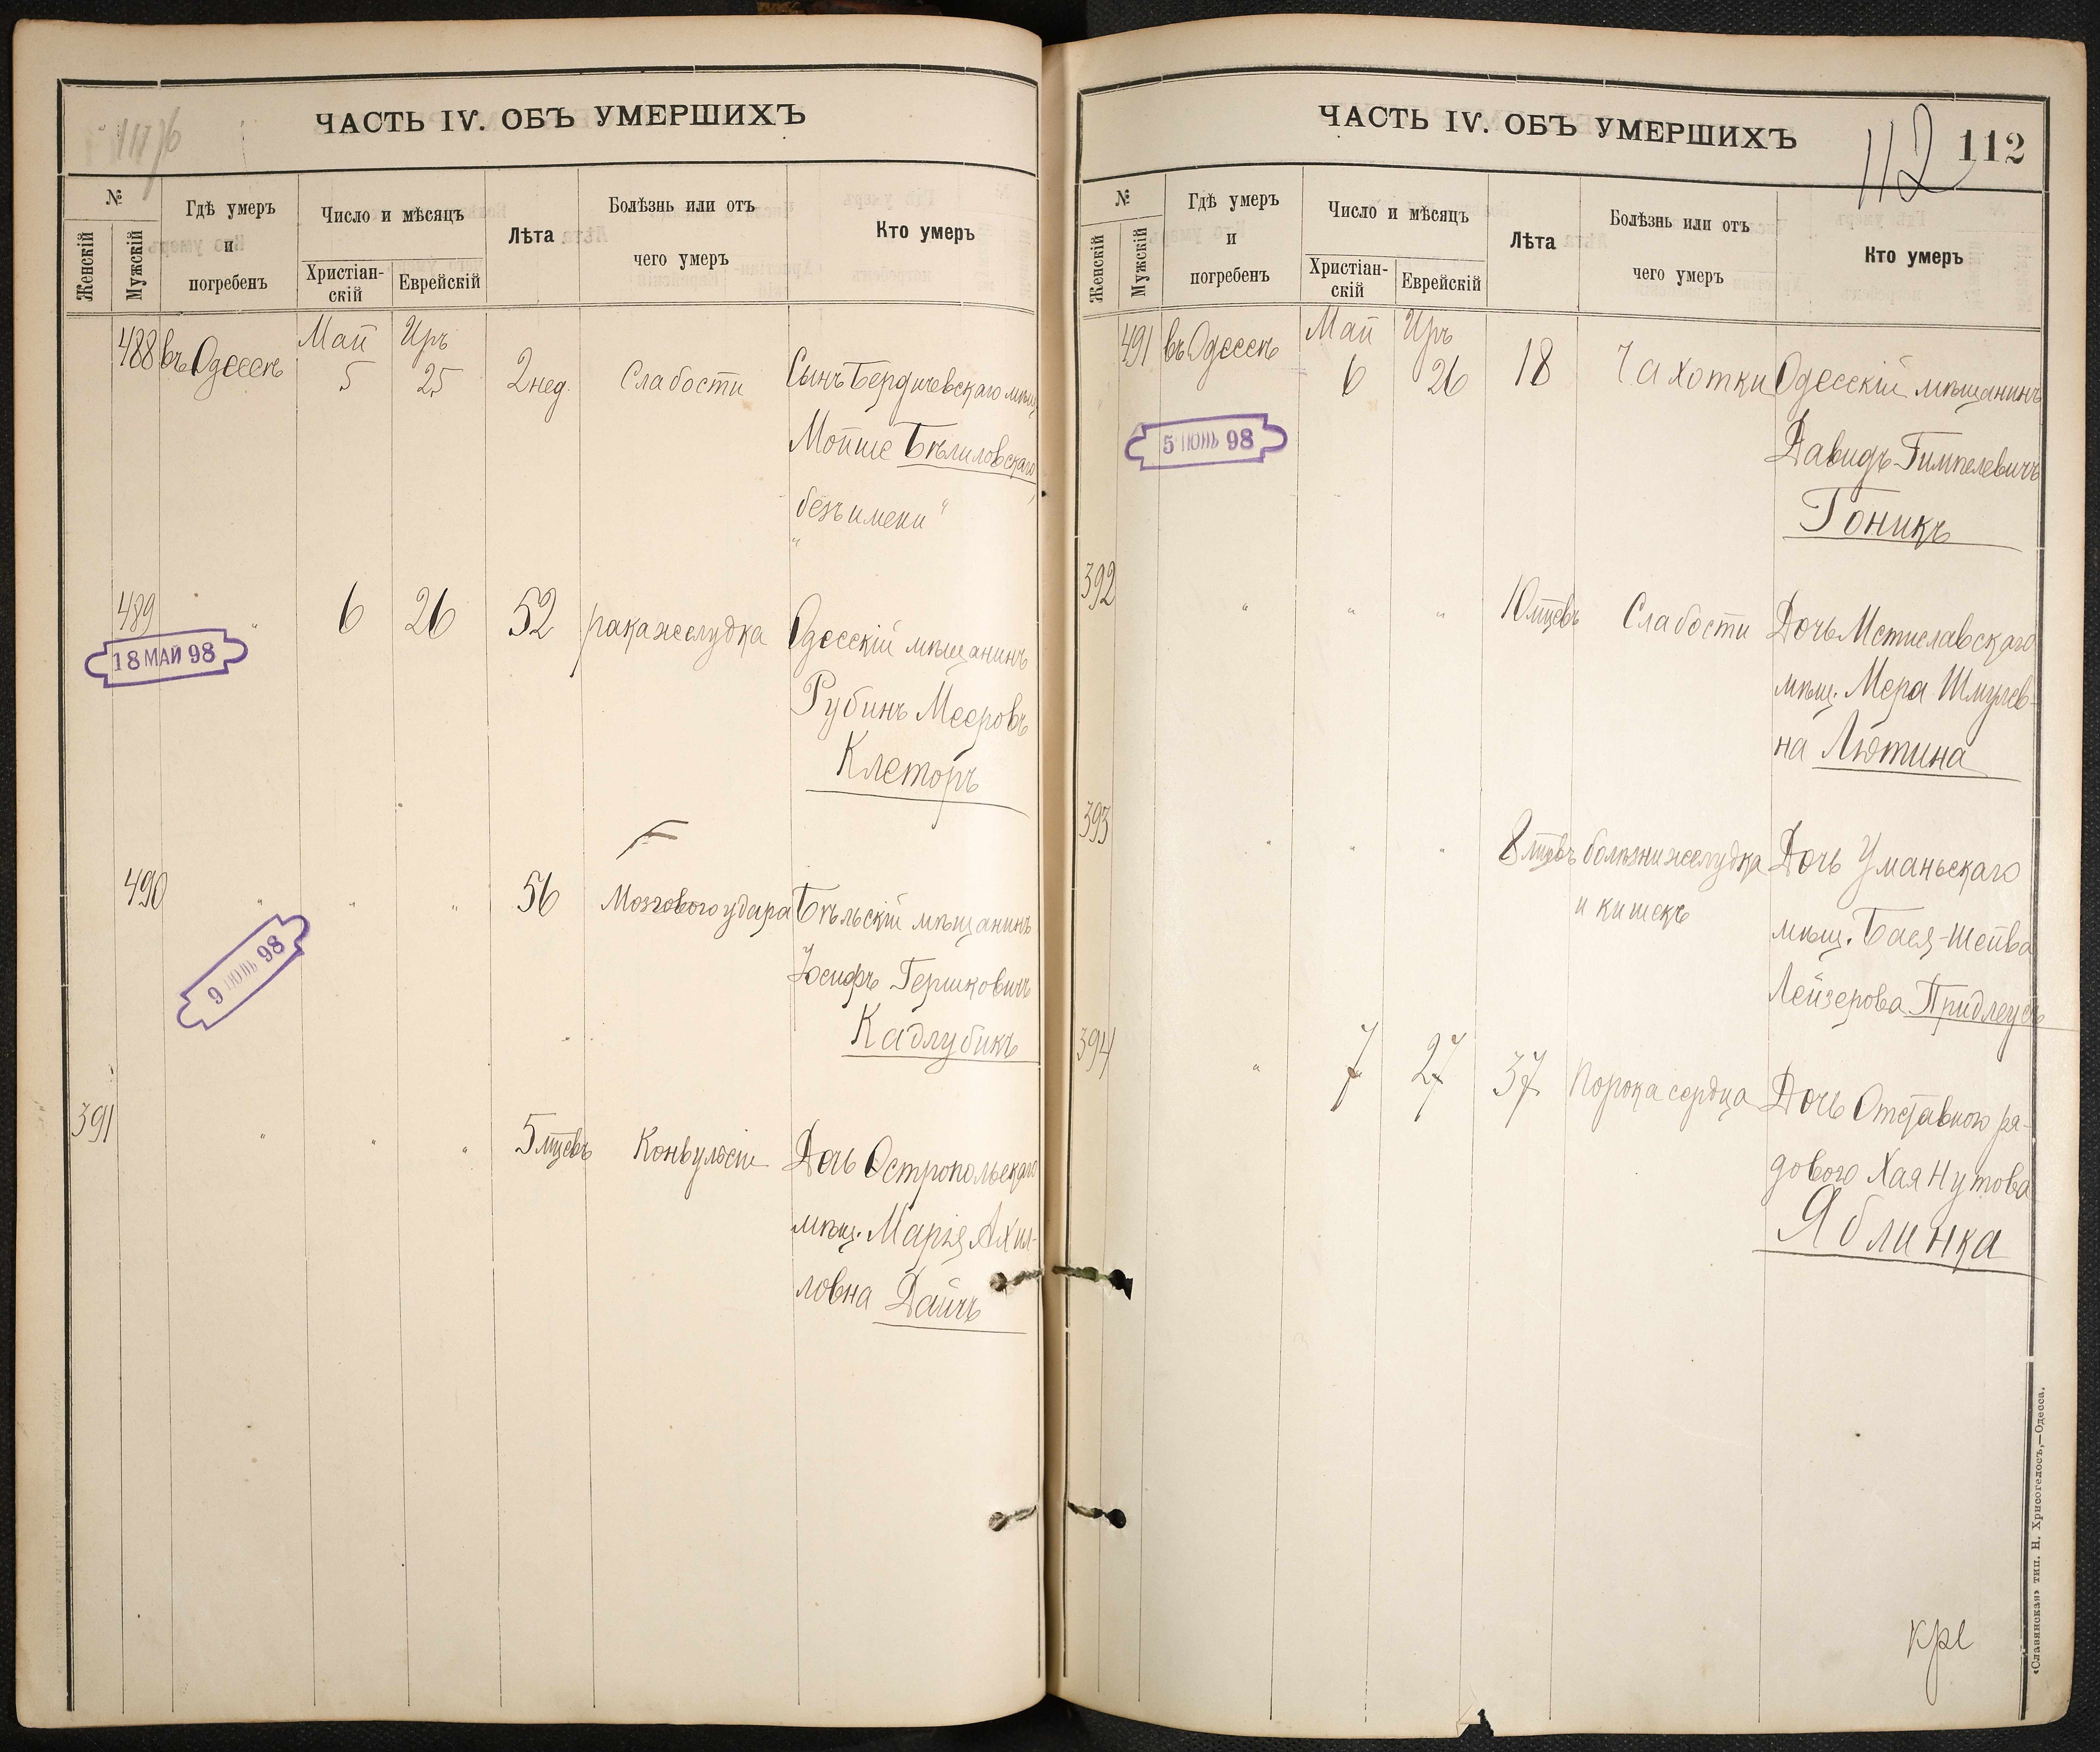 111/6
ЧАСТЬ IV. ОБЪ УМЕРШИХЪ
№
Женскій
Мужскій
Гдѣ умеръ
и
погребенъ
Число и мѣсяцъ
Христіан-
скій
Еврейскій
Лѣта
Болѣзнь или отъ
чего умеръ
Кто умеръ
Май Иръ
488 въ Одессѣ 5 25 2 нед. Слабости Сынъ Бердичевскаго мѣщ.
Мойше Бѣлиловскаго
„безъ имени“
489 " 6 26 52 рака желудка Одесскій мѣщанинъ
18 МАЙ 98
Рубинъ Мееровъ
Клеторъ
490 " " " 56 Мозгового удара Бѣльскій мѣщанинъ
9 ІЮНЬ 98
Іосифъ Гершковичъ
Кадлубикъ
391 " " " 5 мцевъ Конвульсіи Дочь Остропольскаго
мѣщ. Марія Ахил-
ловна Дайчъ
ЧАСТЬ IV. ОБЪ УМЕРШИХЪ
112 112
№
Женскій
Мужскій
Гдѣ умеръ
и
погребенъ
Число и мѣсяцъ
Христіан-
скій
Еврейскій
Лѣта
Болѣзнь или отъ
чего умеръ
Кто умеръ
Май Иръ
491 въ Одессѣ 6 26 18 Чахотки Одесскій мѣщанинъ
5 ІЮНЬ 98
Давидъ Гимпелевичъ
Гоникъ
392 " " " 10 мцевъ Слабости Дочь Мстиславскаго
мѣщ. Мера Шмулев-
на Лютина
393 " " " 8 мцевъ болѣзни желудка Дочь Уманьскаго
и кишекъ
мѣщ. Бася-Шейва
Лейзерова
394 " 7 27 37 Порока сердца Дочь Отставного ря-
дового Хая Нутова
Яблинка
«Славянская» тип. Н. Хрисогелосъ,—Одесса.